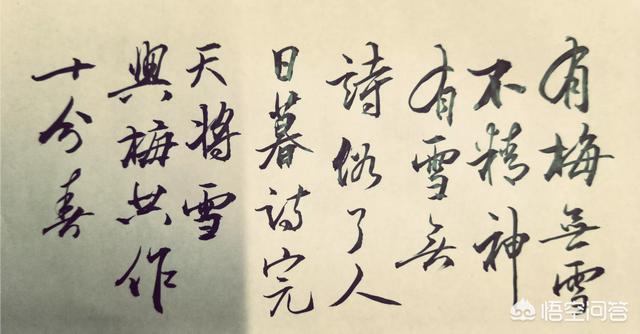 有梅無雪
不精神
有雪無
詩俗了人
日暮詩完
天将雪
與梅共作
十分春
悟空问答